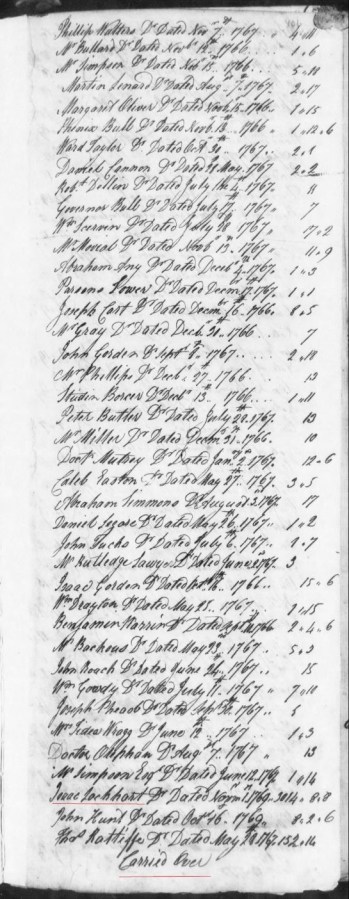 Phillip Walters Dr Dated Novr 7th 1767 .. 4 .. 11
Mr Bullard Dr Dated Novr 12th 1766 .... 1 .. 6
Mr Simpson Dr Dated Novr 15th 1766 .... 5 .. 11
Martin Senard Dr Dated Augt 7th 1767 2 .. 17
Margaret Oliver Dr Dated Novr 15th 1766 .. 1 .. 15
Bull Dr Dated Novr 13th 1766 " 1 .. 12 .. 6
Ward Taylor Dr Dated Octr 30 .. 1767 .. 2 .. 1
Daniel Cannon Dr Dated May 1767 2 .. 2
Robt Dillin Dr Dated July 4 1767 11
Governor Bull Dr Dated July 1767 " 7
Wm Scerven Dr Dated July 18 1767 " 17 .. 2
Mr Dr Dated Novbr 13th 1767 .. 11 .. 9
Abraham Dr Dated Decbr 1767 .. 1 .. 3
Parsons Power Dr Dated Decmr 17th 1767 .. 1 .. 1
Joseph Cart Dr Dated Decmr 16 .. 1766 .. 8 .. 5
Mr Gray Dr Dated Decb 21 .. 1766 .... 7
John Gorden Dr Septr 8th 1767 .... 2 .. 18
Mr Phillips Dr Decbr 27th 1766 .... 13
Dr Decbr 13th 1766 ... 1 .. 11
Peter Butler Dr Dated July 1767 13
Mr Miller Dr Dated Decmr 31 .. 1766 .. 10
Doctr Dr Dated Janr 2 1767 12 .. 6
Caleb Easton Dr Dated May 27th 1767 .. 3 .. 5
Abraham Simmons Dr August 3 1767 17
Daniel Dr Dated May 26th 1767 .. 1 .. 2
John Fuchs Dr Dated July 6th 1767 .. 1 .. 7
Mr Rutledge Lawyer Dr Dated June 1767 3
Isaac Gorden Dr Dated 1766 .. 15 .. 6
Wm Drayton Dr Dated May 25 .. 1767 .. 1 .. 15
Benjamin Dr Dated 1766 2 .. 4 .. 6
Mr Backous Dr Dated May 23 1767 .. 5 .. 3
John Roach Dr Dated June 24th 1767 .. 15
Wm Gowdy Dr Dated July 17th 1767 " 7 .. 10
Joseph Dr Dated Septr 1767 .. 5
Mrs Wragg Dr June 12th 1767 .. 1 .. 3
Doctor Oliphan Dr Augt 7th 1767 " 13
Mr Simpson Esq Dr Dated June 12 1767 1 .. 14
Isaac Lockhart Dr Dated 1769 .. 3014 .. 8 .. 8
John Hunt Dr Dated Octr 16 .. 1769 " 8 .. 2 .. 6
Thos Ratliffe Dr Dated May 1767 .. 152 .. 16
Carried Over